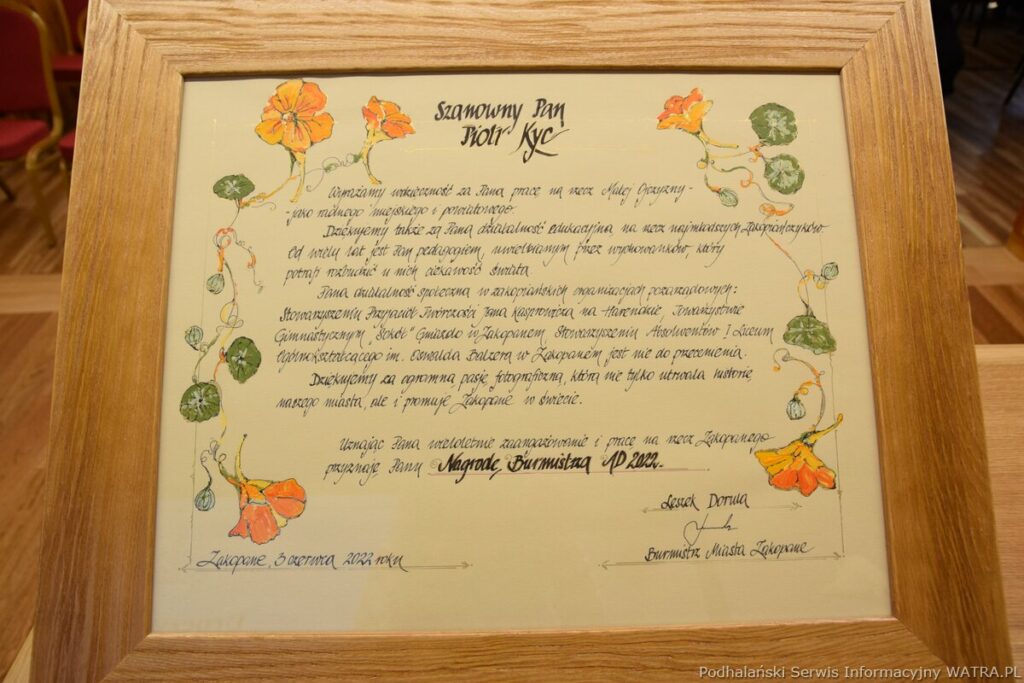 Szanowny Pan
Piotr Kyc
Wyrażamy wdzięczność za Pana pracę na rzecz Małej Ojczyzny -
- jako radnego miejskiego i powiatowego.
Dziękujemy także za Pana działalność edukacyjną na rzecz najmłodszych Zakopiańczyków
Od wielu lat jest Pan pedagogiem, uwielbianym przez wychowanków, który
potrafi rozbudzić w nich ciekawość świata.
Pana działalność społeczna w zakopiańskich organizacjach pozarządowych:
Stowarzyszeniu Przyjaciół Twórczości Jana Kasprowicza na Harendzie, Towarzystwie
Gimnastycznym "Sokół" Gniazdo w Zakopanem, Stowarzyszeniu Absolwentów I Liceum
Ogólnokształcącego im. Oswalda Balzera w Zakopanem jest nie do przecenienia.
Dziękujemy za ogromną pasję fotograficzną, która nie tylko utrwala historię
naszego miasta, ale i promuje Zakopane w świecie.
Uznając Pana wieloletnie zaangażowanie i pracę na rzecz Zakopanego
przyznaję Panu Nagrodę Burmistrza AD 2022.
Leszek Dorula
Burmistrz Miasta Zakopane
Zakopane, 3 czerwca 2022 roku
Podhalański Serwis Informacyjny WATRA.PL